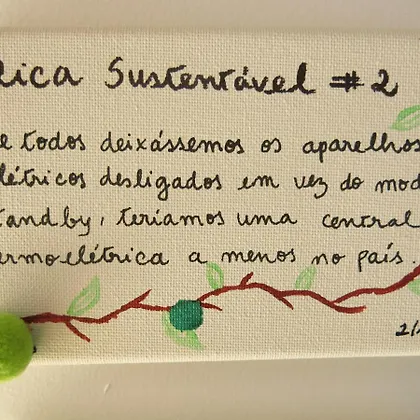 lica Sustentável #2
e todos deixássemos os aparelhos
létricos desligados em vez do mod
tandby, teríamos uma central
ermoelétrica a menos no país.
2/